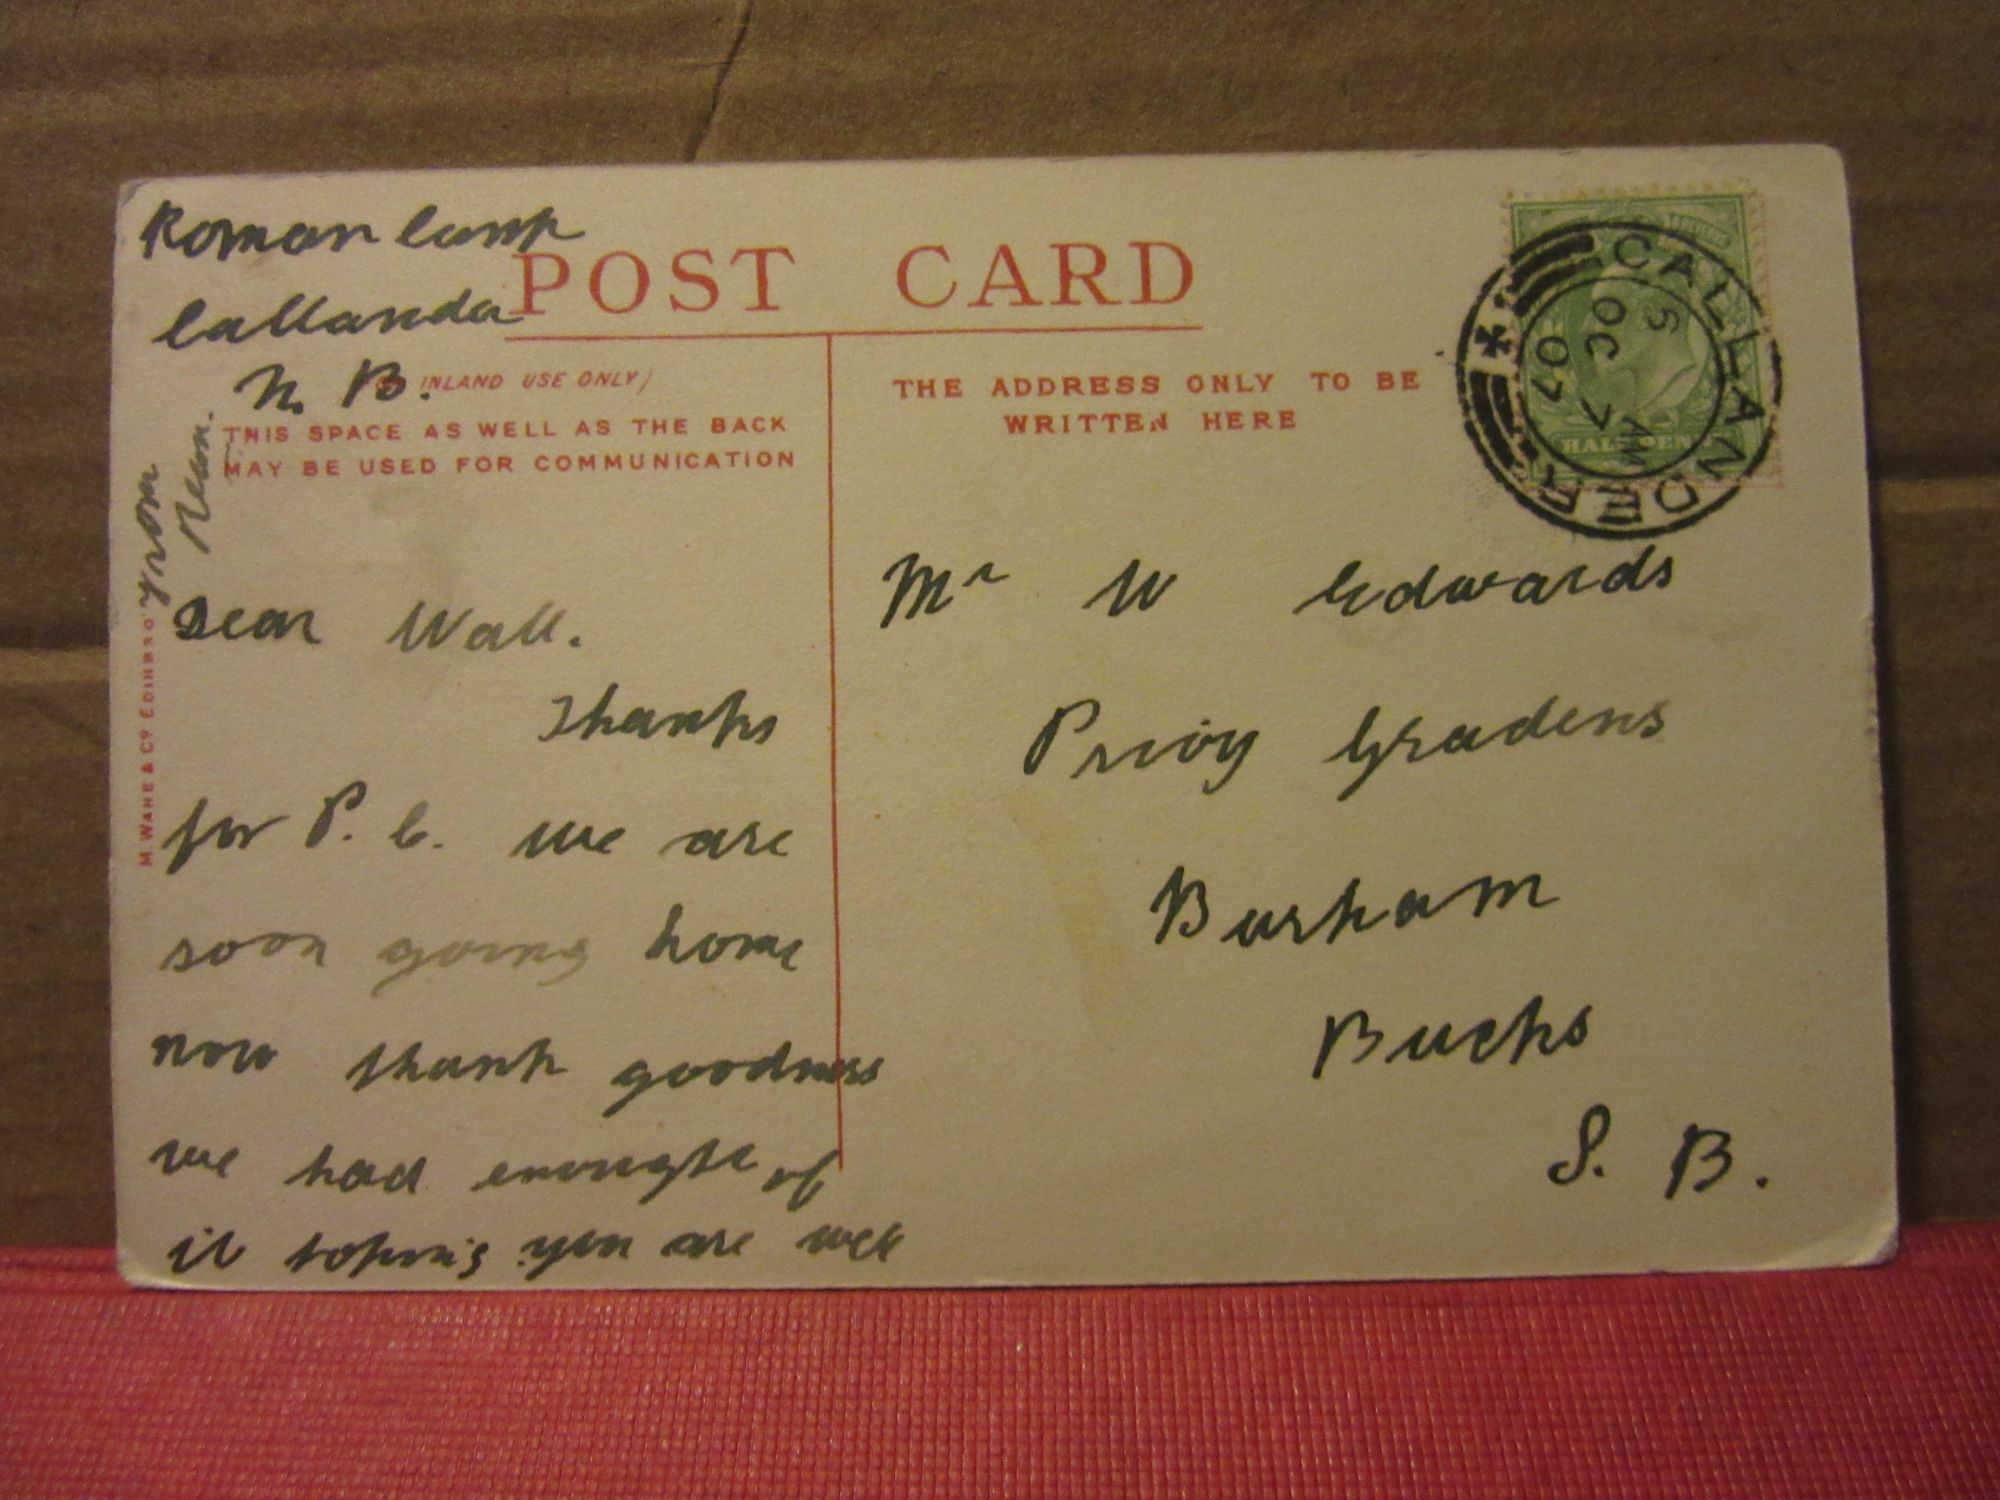 Roman Camp
Callanda
N. B.
POST CARD
INLAND USE ONLY)
THIS SPACE AS WELL AS THE BACK
MAY BE USED FOR COMMUNICATION
THE ADDRESS ONLY TO BE
WRITTEN HERE
CALLANDER
6 AM
OC 7
07
HALFPENNY
M. WANE & CO EDINBRO'
from
Dear Wall.
Thanks
for P. C. We are
soon going home
now thank goodness
we had enought of
it you are well
Mr W Edwards
Prioy Gradens
Burham
Bucks
S. B.